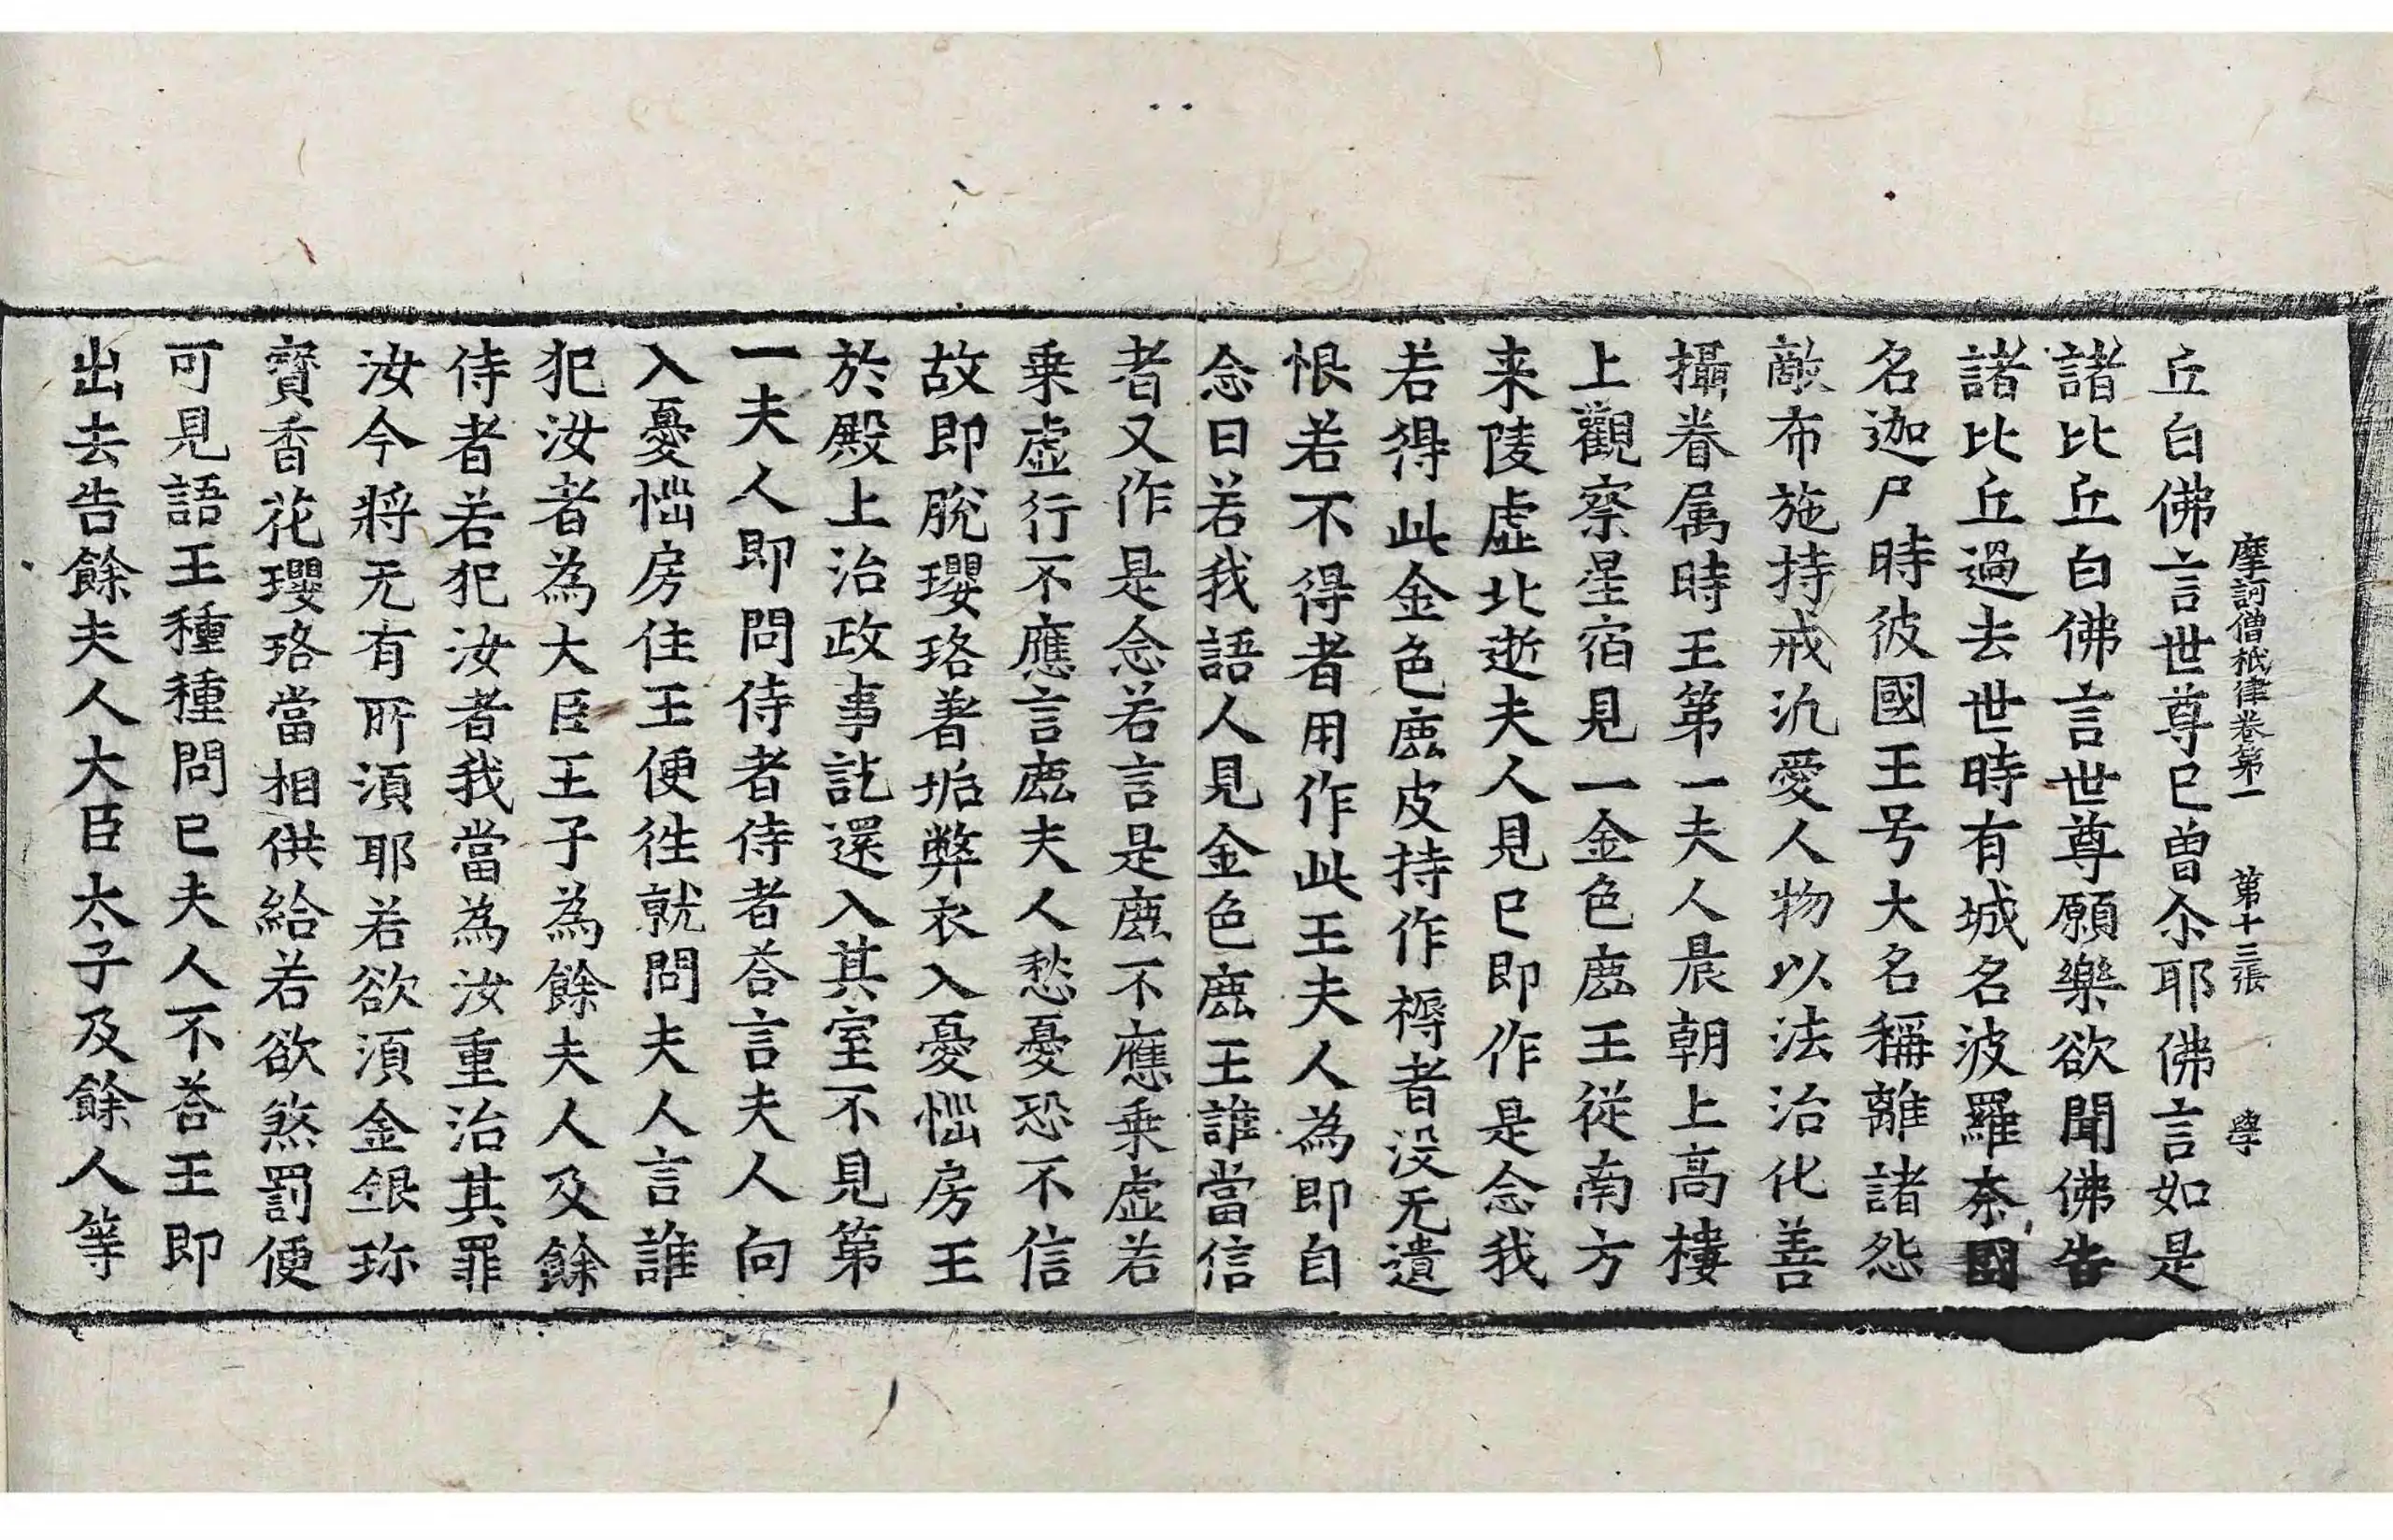 摩訶僧祇律卷第一　第十三張　學
丘白佛言世尊已曾尒耶佛言如是
諸比丘白佛言世尊願樂欲聞佛告
諸比丘過去世時有城名波羅奈國
名迦尸時彼國王号大名稱離諸怨
敵布施持戒汎愛人物以法治化善
攝眷属時王第一夫人晨朝上高樓
上觀察星宿見一金色鹿王從南方
来陵虚北逝夫人見已即作是念我
若得此金色鹿皮持作褥者没无遺
恨若不得者用作此王夫人為即自
念曰若我語人見金色鹿王誰當信
者又作是念若言是鹿不應乗虚若
乗虚行不應言鹿夫人愁憂恐不信
故即脫瓔珞著垢弊衣入憂惱房王
於殿上治政事訖還入其室不見第
一夫人即問侍者侍者荅言夫人向
入憂惱房住王便徃就問夫人言誰
犯汝者為大臣王子為餘夫人及餘
侍者若犯汝者我當為汝重治其罪
汝今將无有所湏耶若欲湏金銀珎
寶香花瓔珞當相供給若欲煞罰便
可見語王種種問已夫人不荅王即
出去告餘夫人大臣太子及餘人等